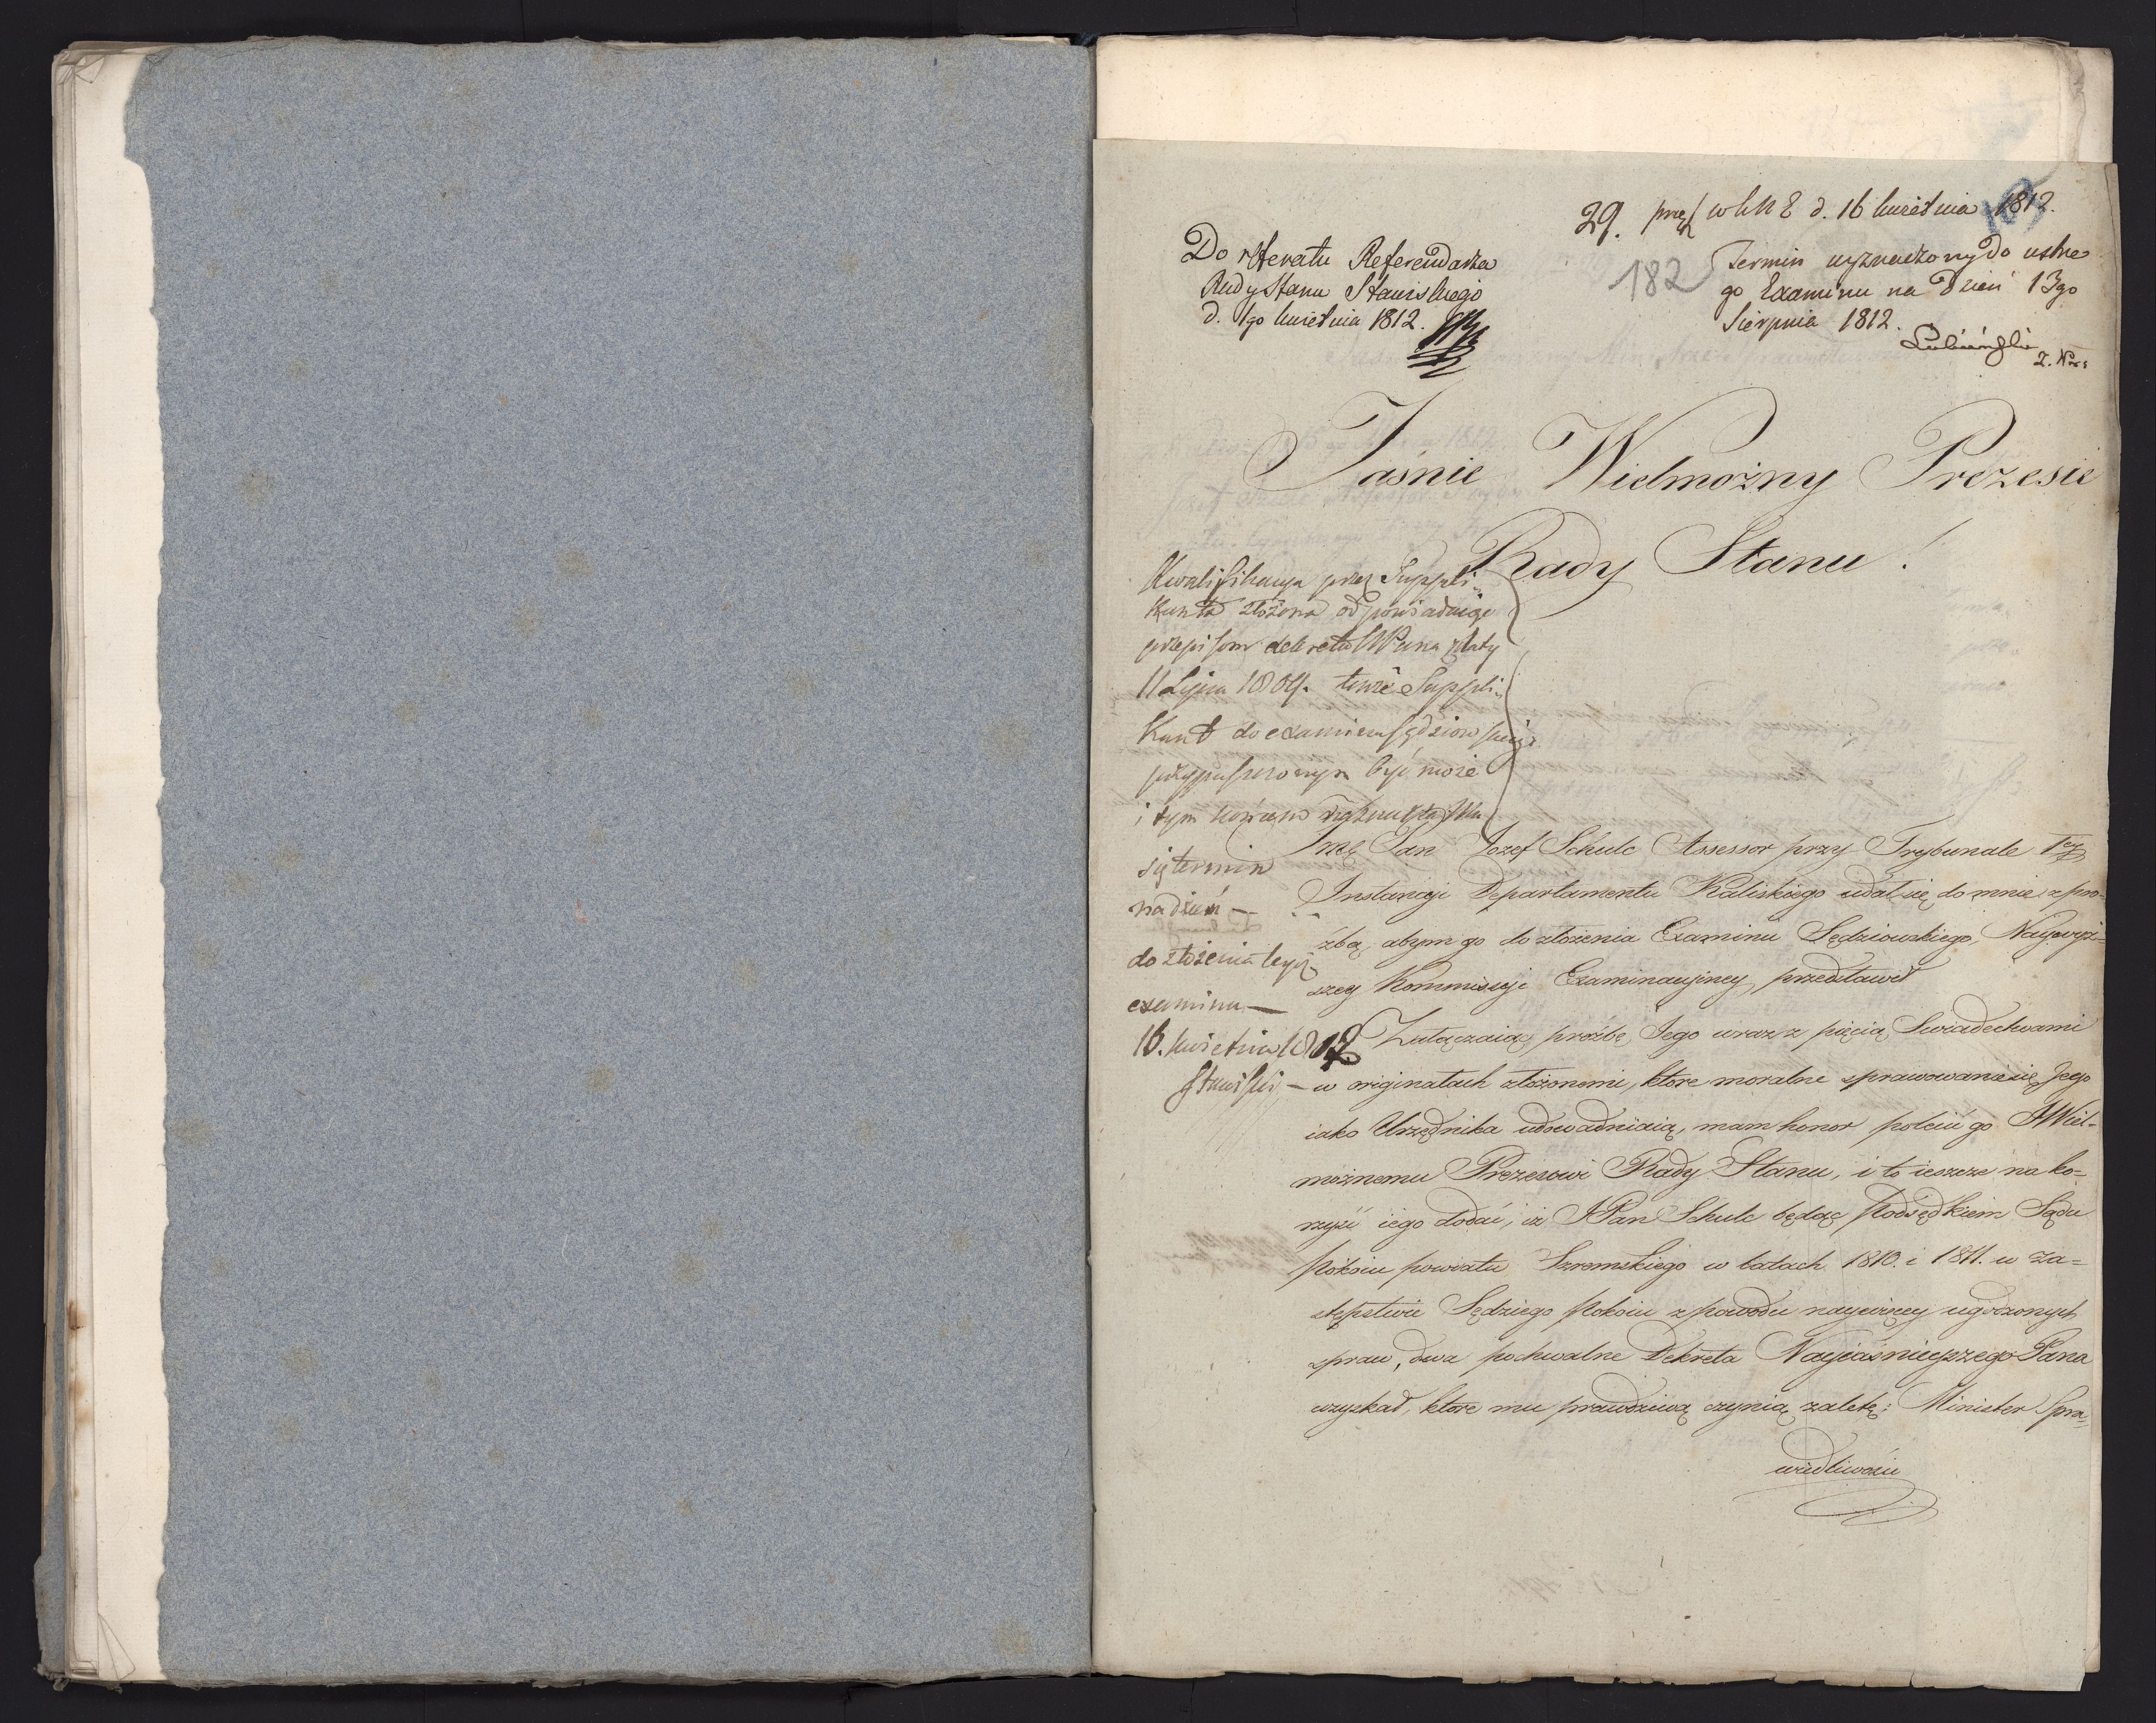 29. w h N E d. 16 kwietnia 1812.
183
Do referatu Referendarza
Rady Stanu Stawiskiego
d. 1go kwietnia 1812.
182
Termin wyznaczony do ustne
go Examinu na Dzień 13go
Sierpnia 1812.
Jaśnie Wielmożny Prezesie
Rady Stanu !
Kwalifikacya przez Suppli-
kanta złożona odpowiadaiąc
przepisom dekretu z daty
11 Lipca 1809. tenże Suppli-
kant do examinu sędziowskiego
przypuszczonym być może
i tym końcem
się termin
na dzień —
do złożenia tegoż
examinu —
16. kwietnia 1812
Stawiski —
Imć Pan Jozef Schulc Assessor przy Trybunale 1ey
Instancyi Departamentu Kaliskiego udał się do mnie z pro-
źbą, abym go do złożenia Examinu Sędziowskiego, Naywyż-
szey Kommissyi Examinacyiney przedstawił
Załączaiąc prozbę Jego wraz z pięcią Swiadectwami
w originałach złożonemi, ktore moralne sprawowanie się Jego
iako Urzędnika udowadniaią, mam honor polecić go JWiel-
możnemu Prezesowi Rady Stanu, i to ieszcze na ko-
rzyść iego dodać, iż JPan Schulc będąc Podsędkiem Sądu
Pokoiu powiatu Szremskiego w latach 1810. i 1811. w za-
stępstwie Sędziego Pokoiu z powodu naywięcey ugodzonych
spraw, dwa pochwalne Dekreta Nayiaśnieyszego Pana
uzyskał, ktore mu prawdziwą czynią zaletę: Minister Spra-
wiedliwości